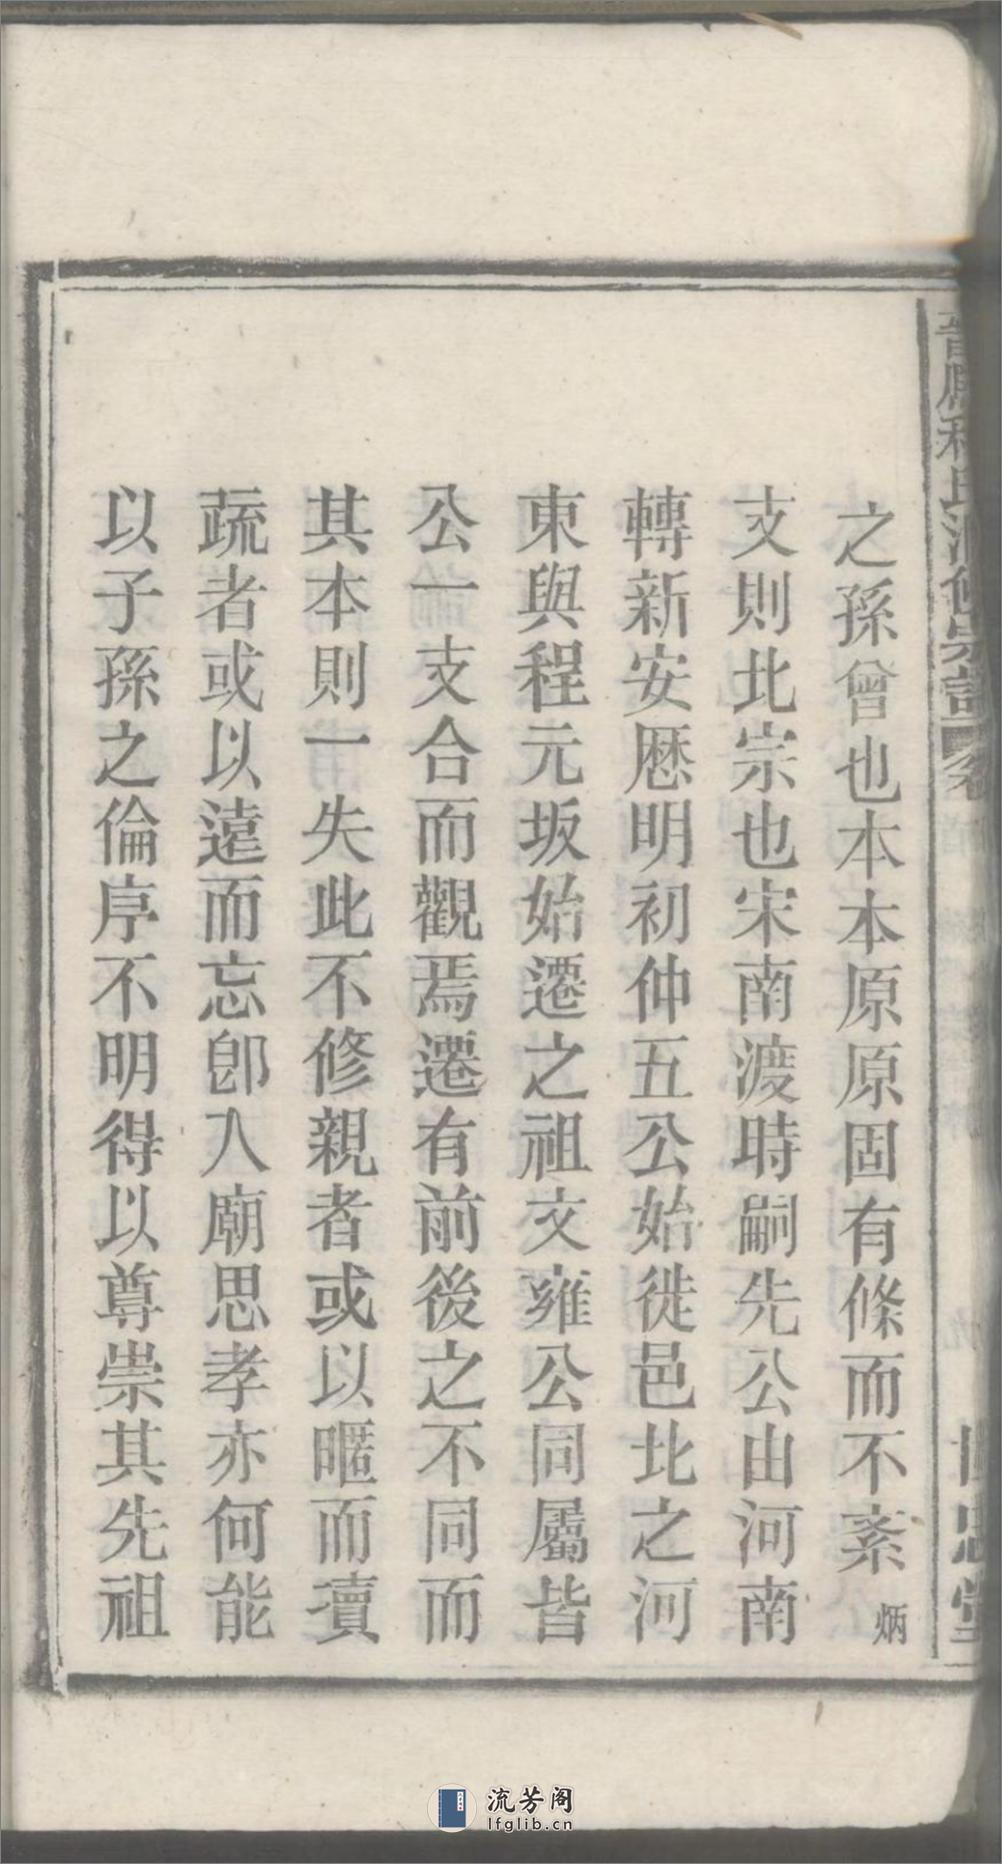 之孫曾也本本原原固有條而不紊炳
支則北宗也宋南渡時嗣先公由河南
轉新安厯明初仲五公始徙邑北之河
東與程元坂始遷之祖文雍公同屬皆
公一支合而觀焉遷有前後之不同而
其本則一失此不修親者或以暱而瀆
疏者或以遠而忘卽入廟思孝亦何能
以子孫之倫序不明得以尊崇其先祖
流芳阁
lfglib.cn